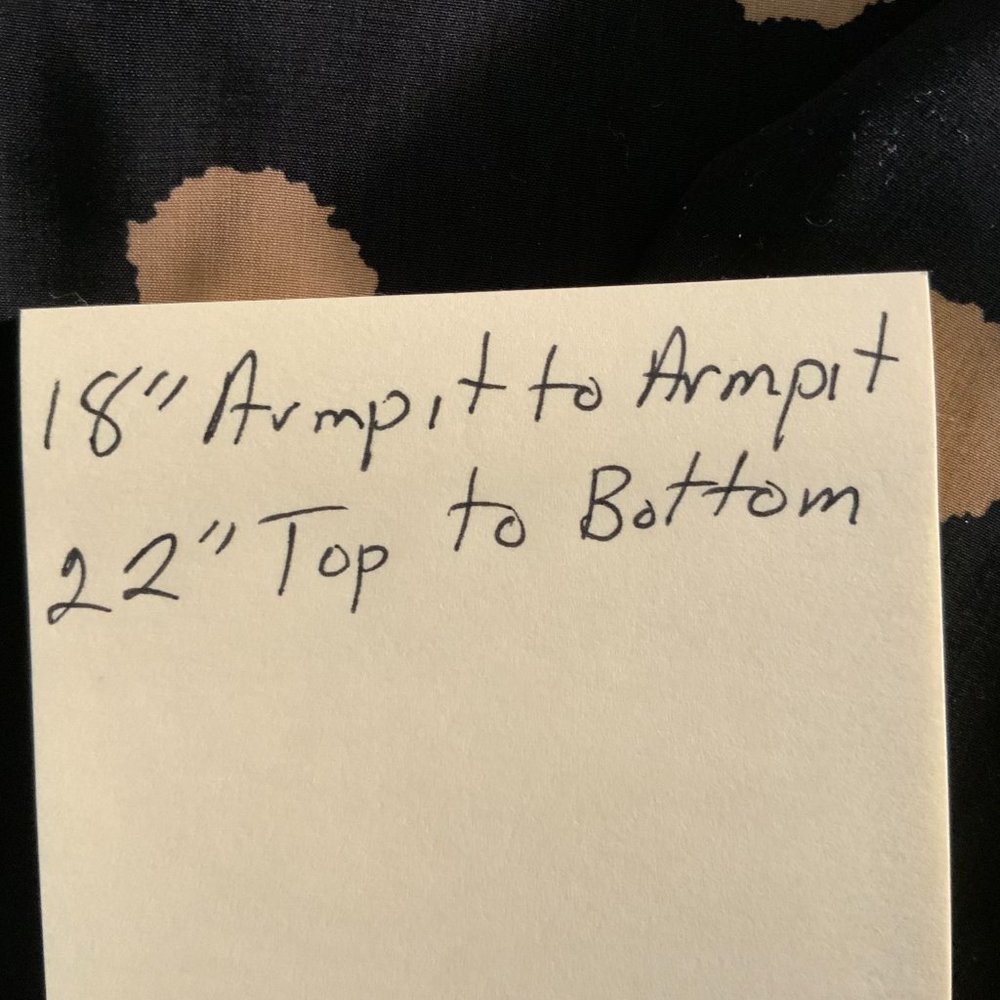 18" Armpit to Armpit
22" Top to Bottom